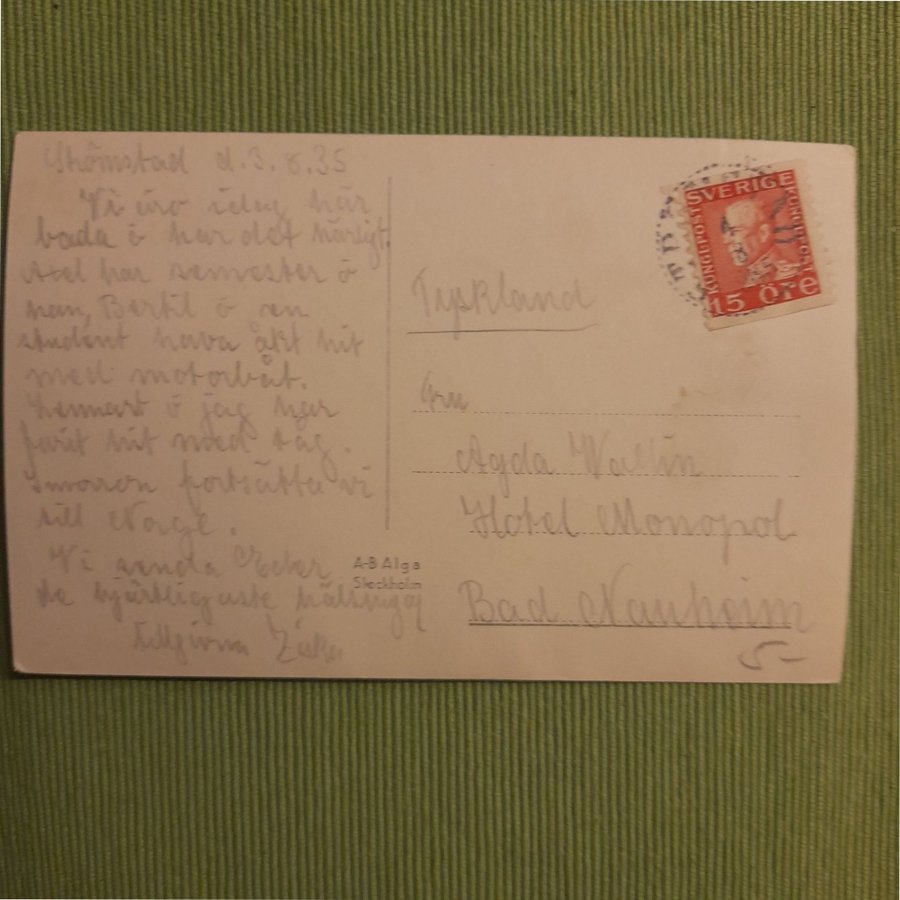 Strömstad d. 3.8.35
Vi äro idag här
bada ö har det härligt.
Axel har semester ö
han, Bertil ö en
student hava åkt hit
med motorbåt.
Lennart ö jag har
farit hit med tåg.
Imorron fortsätta vi
till Norge.
Vi sända Eder
de hjärtligaste hälsningar
Tillgivna
A-B Alga
Stockholm
SVERIGE
KUNGLPOST
15 ÖRE
Tyskland
Fru
Agda Wallin
Hotel Monopol
Bad Nauheim
5-